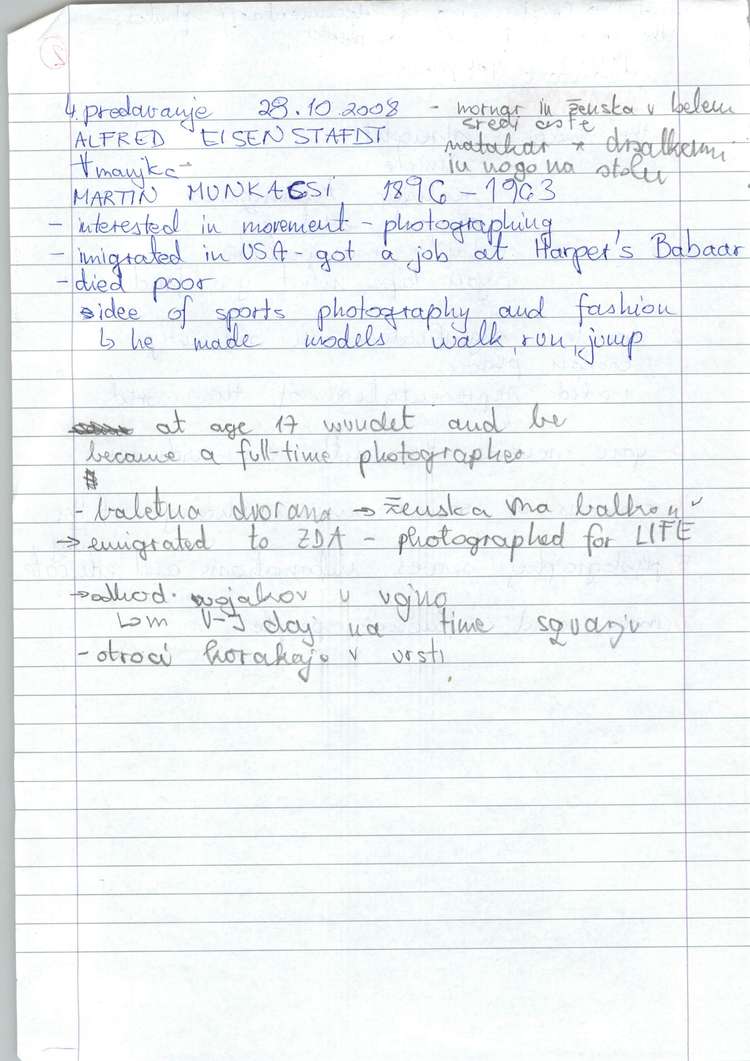 2
4. predavanje 29.10.2008 - mornar in ženska v belem
sredi ceste
ALFRED EISENSTAEDT natakar z drsalkami
manjka in nogo na stolu
MARTIN MUNKACSI 1896 - 1963
- interested in movement - photographing
- imigrated in USA - got a job at Harper's Babaar
- died poor
idee of sports photography and fashion
↳ he made models walk, run, jump
at age 17 woudet and he
became a full-time photographer
- baletna dvorana → ženska na balkonu
→ emigrated to ZDA - photographed for LIFE
→ odhod vojakov v vojno
↳ V-J day na time squarju
- otroci korakajo v vrsti